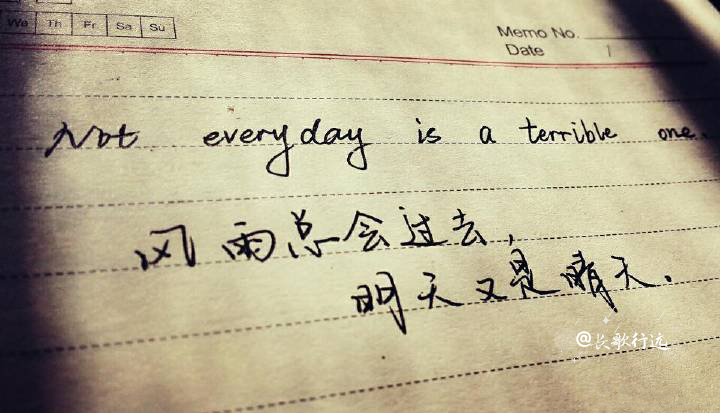 We Th Fr Sa Su
Memo No.
Date /
Not everyday is a terrible one.
风雨总会过去,
明天又是晴天.
@长歌行远